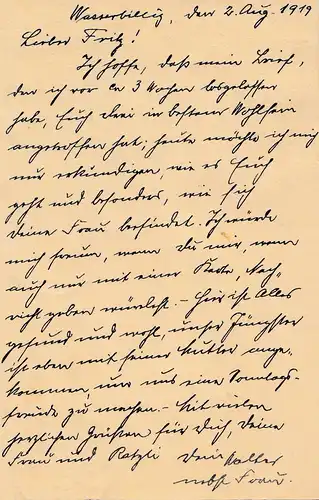 Wasserbillig, den 2. Aug. 1919
Lieber Fritz!
Ich hoffe, daß mein Brief,
den ich vor ca 3 Wochen losgelassen
habe, Euch drei in bestem Wohlsein
angetroffen hat; heute möchte ich mich
nur erkundigen, wie es Euch
geht und besonders, wie sich
Deine Frau befindet. Ich würde
mich freuen, wenn Du mir, wenn
auch nur mit einer Karte, Nach-
richt geben würdest. – Hier ist Alles
gesund und wohl, unser Jüngster
ist eben mit seiner Mutter ange-
kommen, um uns eine Sonntags-
freude zu machen. – Mit vielen
herzlichen Grüßen für Dich, Deine
Frau und
Dein
nebst Frau.